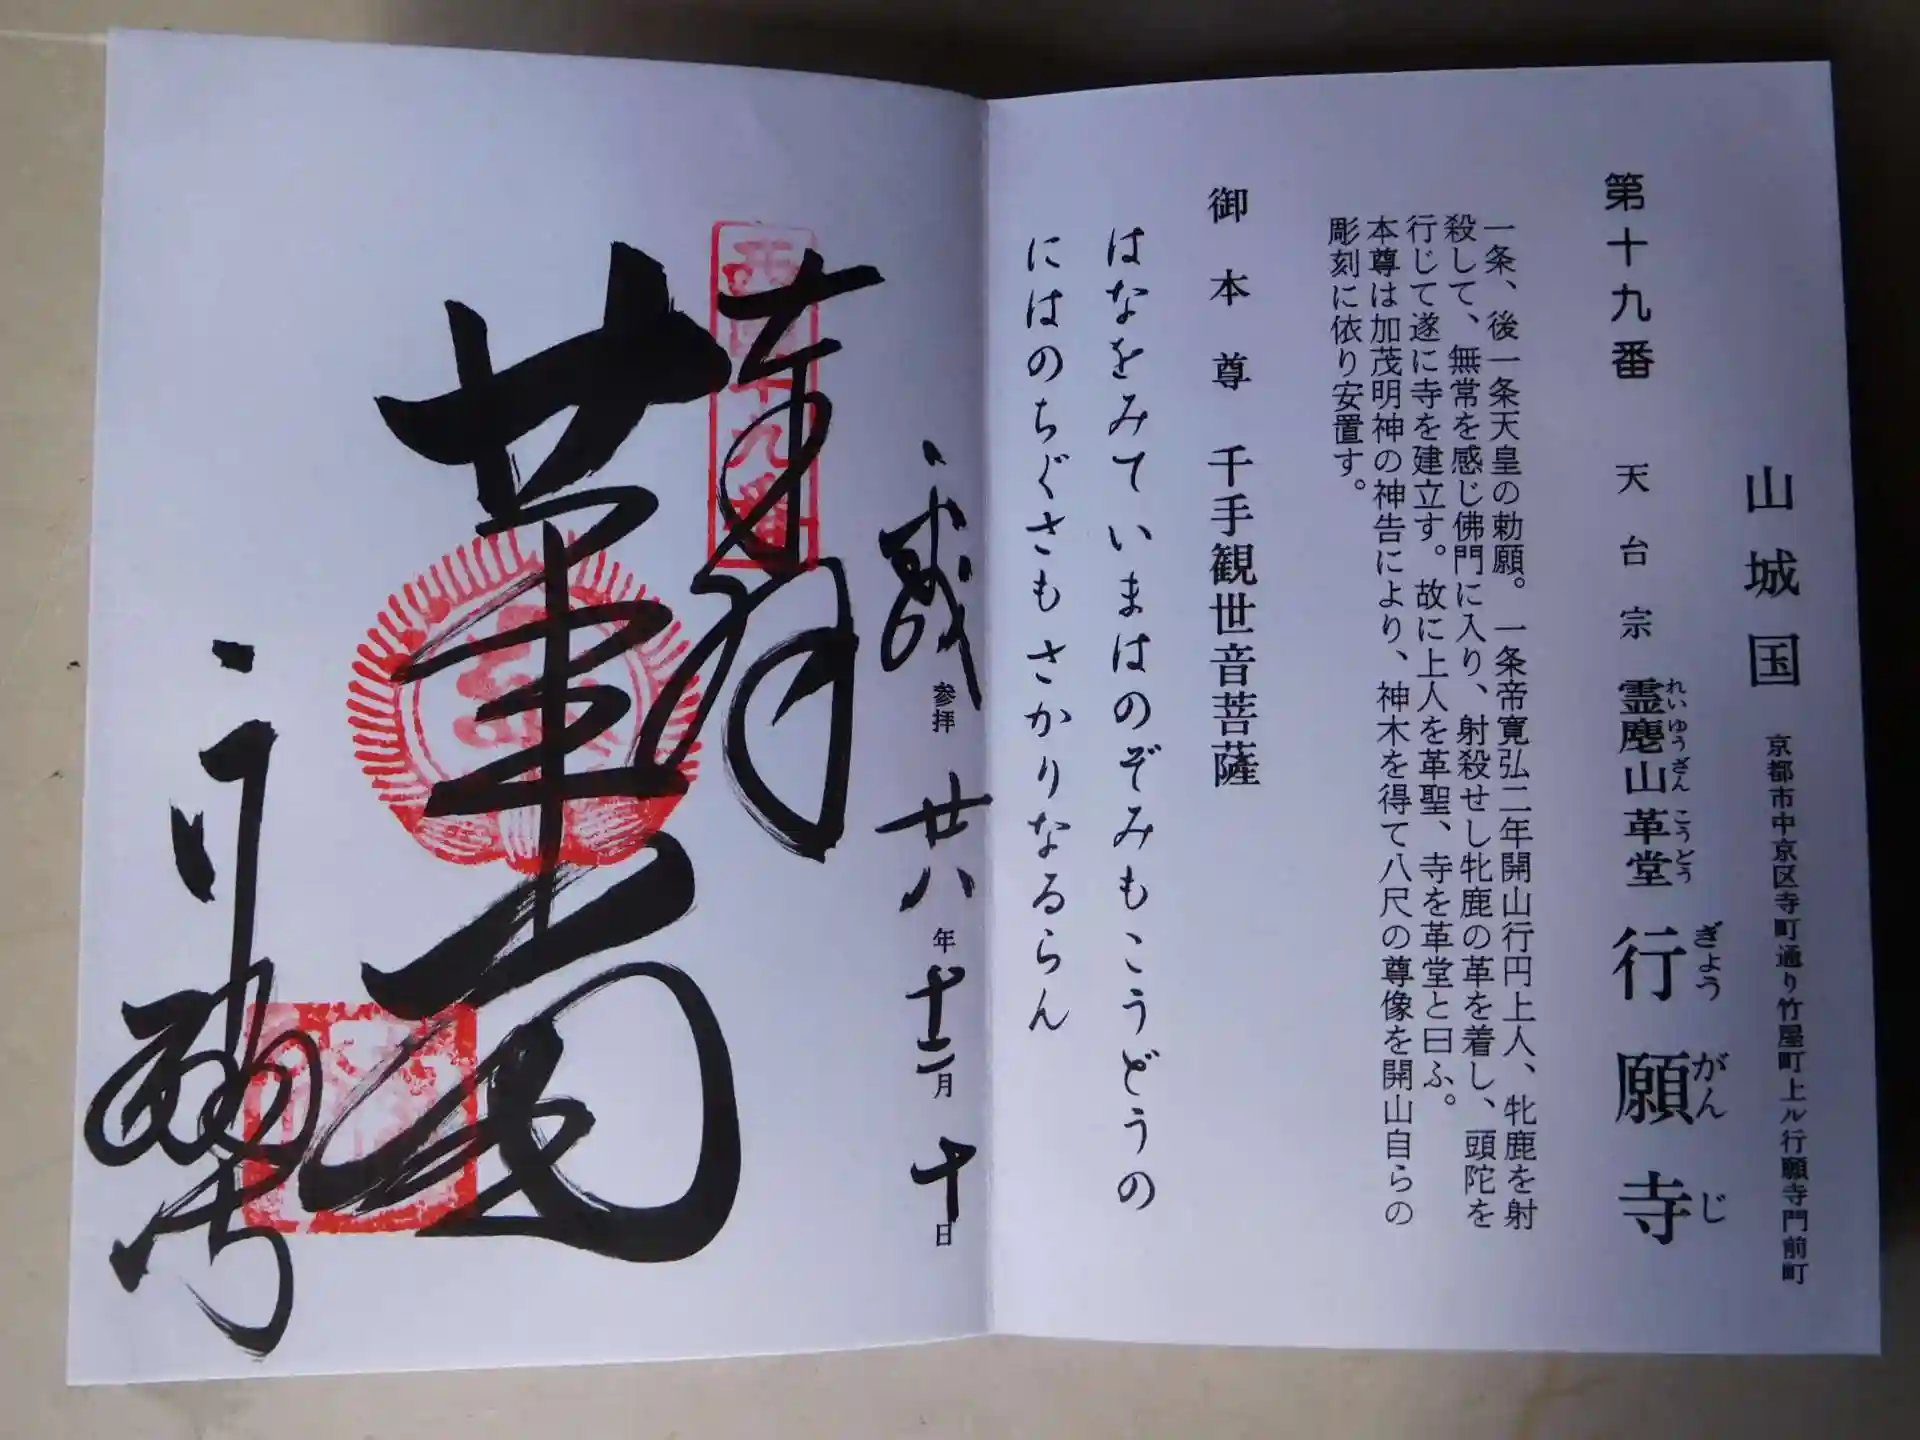 山城国
京都市中京区寺町通り竹屋町上ル行願寺門前町
第十九番 天台宗 霊麀山革堂 行願寺
れいゆうざん こうどう ぎょう がん じ
一条、後一条天皇の勅願。一条帝寛弘二年開山行円上人、牝鹿を射
殺して、無常を感じ佛門に入り、射殺せし牝鹿の革を着し、頭陀を
行じて遂に寺を建立す。故に上人を革聖、寺を革堂と曰ふ。
本尊は加茂明神の神告により、神木を得て八尺の尊像を開山自らの
彫刻に依り安置す。
御本尊 千手観世音菩薩
はなをみていまはのぞみもこうどうの
にはのちぐさもさかりなるらん
参拝 廿八年十二月十日
奉拝
西国十九番
革堂
行願寺